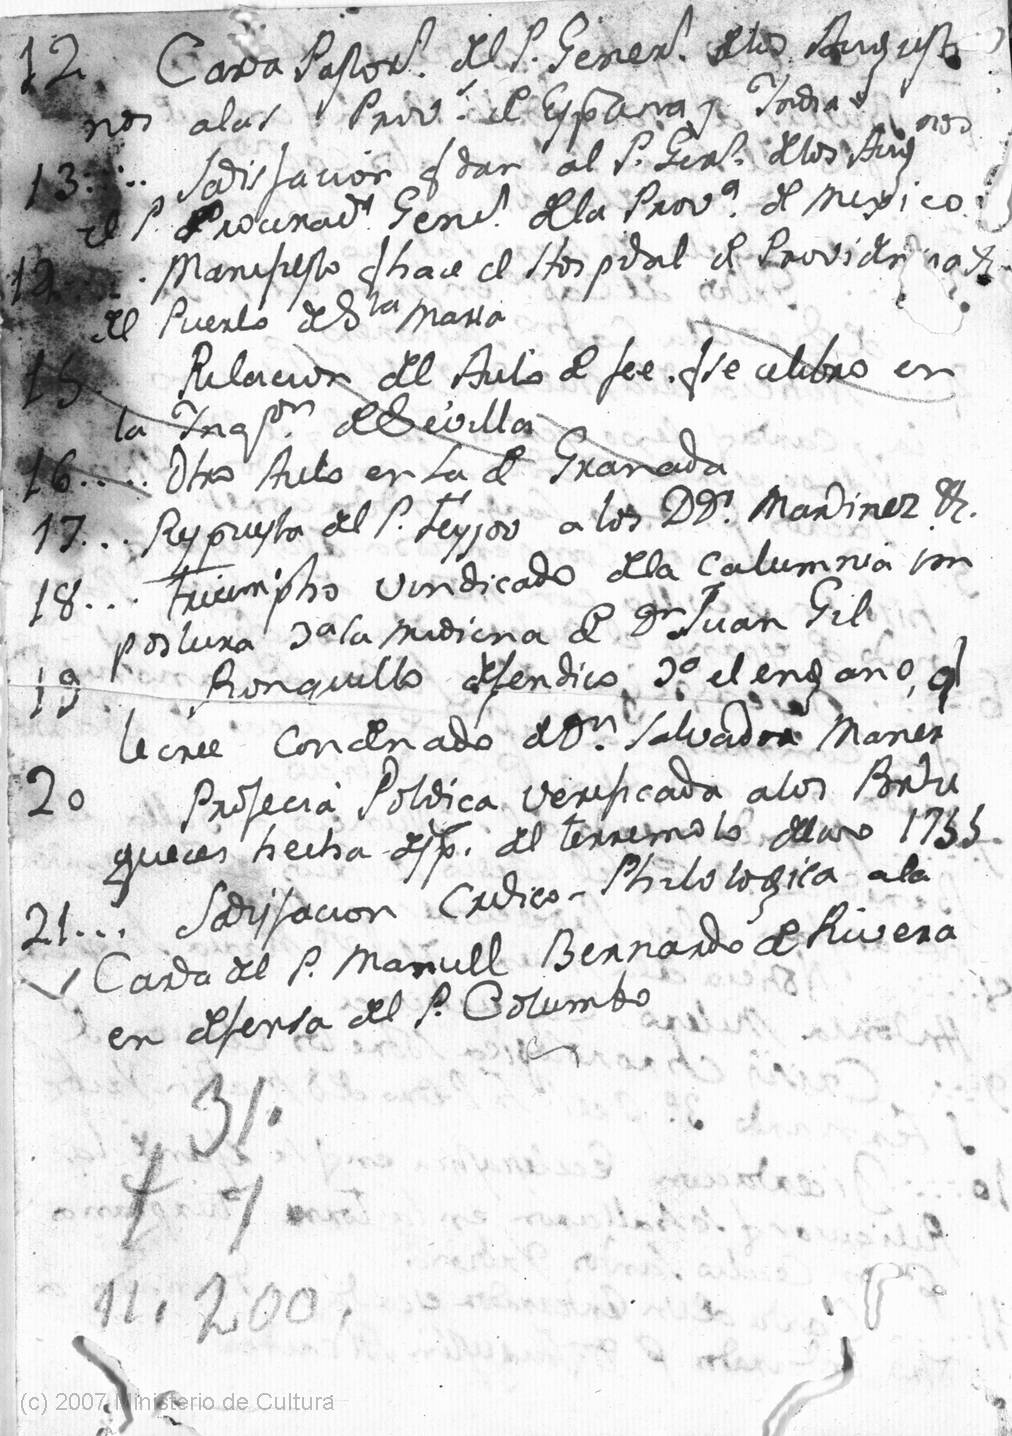 12. Carta Pastorl. del P. Generl. de los Augusti
nos a las Provs. de España, y Indias
13.... Satisfacion q dan al P. Genl. de los Augnos
el P. Procuradr. Genl. de la Prova. de Mexico.
14.... Manifiesto q hace el Hospital de Providencia &.
del Puerto de Sta Maria
15 Relacion del Auto de fee. q se celebro en
la Inqon. de Sevilla
16..... Otro Auto en la de Granada
17... Respuesta del P. Feyjoo a los DDs. Martinez &.
18... Triumpho vindicado de la calumnia im
postura de la medicina de Dn Juan Gil
19 Ronquillo defendido do el engaño, q
le cree condenado de Dn. Salvador Maner
20 Profecia Politica verificada a los Portu
gueces hecha desp. del terremoto de año 1755
21... Satisfacion Critico-Philologica a la
Carta del P. Manuel Bernardo de Rivera
en defensa del P. Columbo
31.
11. 200.
(c) 2007 Ministerio de Cultura